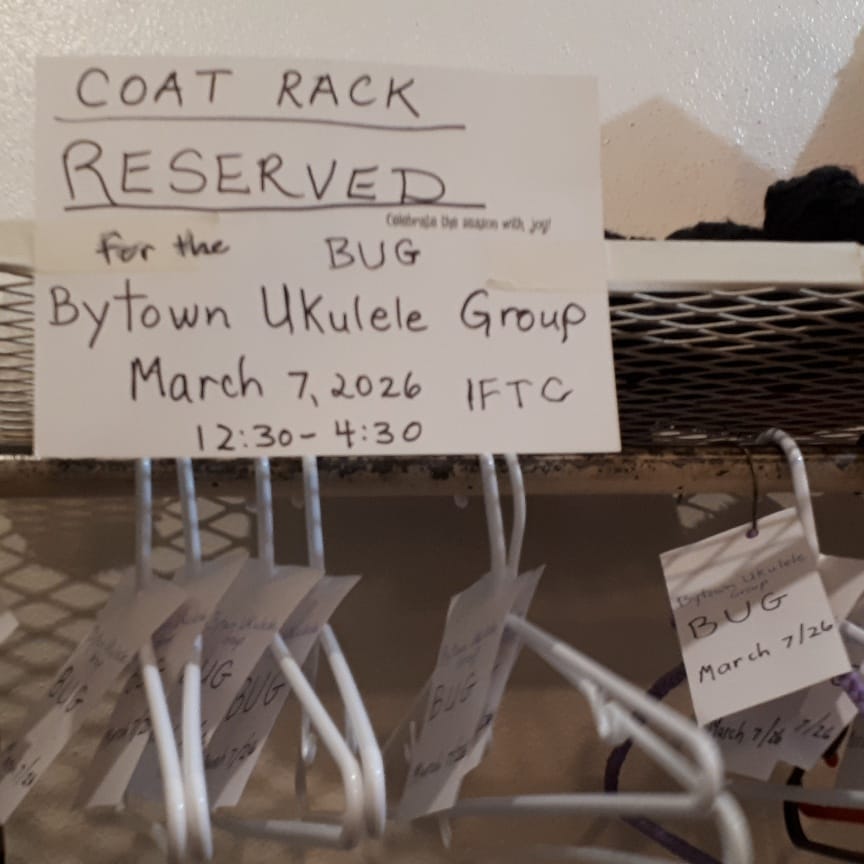 COAT RACK
RESERVED
Celebrate the season with joy!
for the BUG
Bytown Ukulele Group
March 7, 2026 IFTC
12:30 - 4:30
Bytown Ukulele
Group
BUG
March 7/26
March 7/26
7/26
BUG
BUG
BUG
March 7/26
BUG